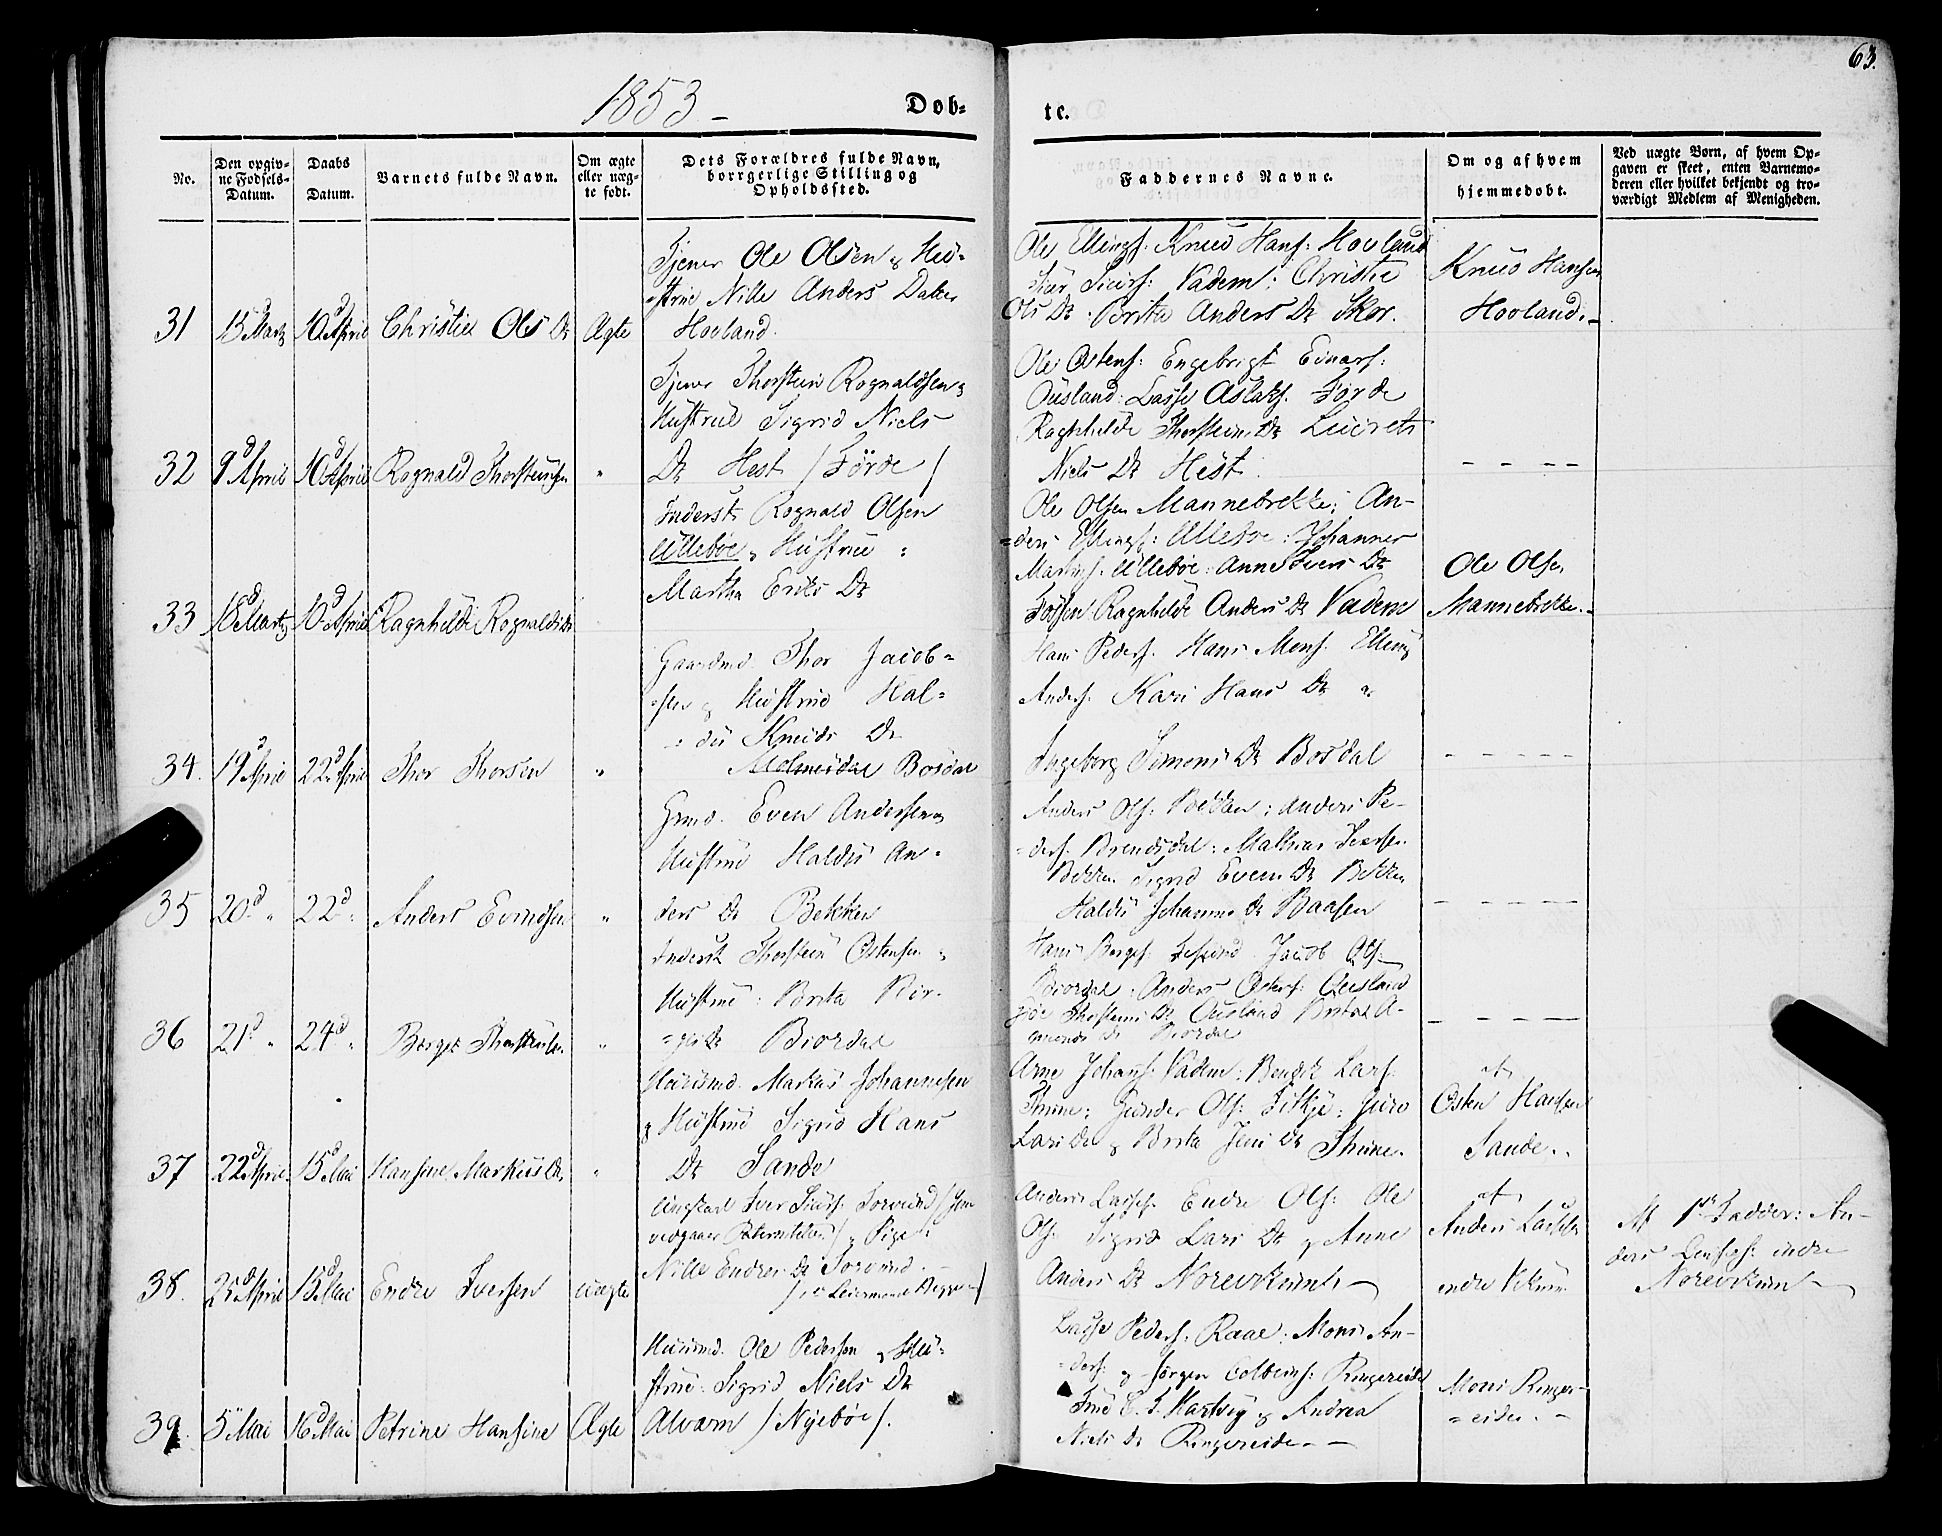 63.
1853 –
Døb-
te.
No.
Den opgiv-
ne Fødsels-
Datum.
Daabs
Datum.
Barnets fulde Navn.
Om ægte
eller uæg-
te født.
Dets Forældres fulde Navn,
borgerlige Stilling og
Opholdssted.
Faddernes Navne.
Om og af hvem
hjemmedøbt.
Ved uægte Børn, af hvem Op-
gaven er skeet, enten Barnemo-
deren eller hvilket bekjendt og tro-
værdigt Medlem af Menigheden.
31
15 Marts
10d April
Christie Ols Dr
Ægte
Tjener Ole Olsen & Hu-
strue Nille Anders Datter
Hovland.
Ole Ellings: Knud Hans: Hovland
Siurs: Vadem: Christie
Ols Dr Brita Anders Dr Skor.
Knud Hansen
Hovland. –
32
9d April
10d April
Rognald Thorsteinsen
"
Tjener Thorstein Rognaldsen &
Hustrue Sigrid Niels
Dr Hest / Førde /
Ole Ostens: Engebrigt Einars:
Ousland: Lasse Aslaks. Førde
Ragnhilde Thorsteins Dr
Niels Dr Hest
– – – –
33
18d Marts
10d April
Ragnhilde Rognalds Dr
Inderst Rognald Olsen
Ulleboe & Hustrue :
Martha Eriks Dr
Ole Olsen Mannebrekke; An-
ders Ellings: Ulleboe: Johannes
Ulleboe: Anne Ivers Dr
Fossen Ragnhilde Anders Dr Vadem
Ole Olsen
Mannebrekke. –
34.
19d April
22d April
Thor Thorsen
"
Gaardmd. Thor Jacob-
sen & Hustrue Hal-
dis Knuds Dr
Bosdal
Hans Peders. Hans Mons. Elling
Anders. Kari Hans Dr &
Ingeborg Simons Dr Bosdal
– – – –
35
20d "
22d "
Anders Evendsen
"
Grmd. Even Andersen &
Hustrue Haldis An-
ders Dr Bekken
Anders Ols: Bekken; Anders Pe-
ders. Brendsdal: Mathias
Bekken Sigrid Evens Dr Bekken
Haldis Johannes Dr Baasen
– – – –
36
21d "
24d "
Børge Thorsteinsen
"
Inderst Thorstein Ostensen &
Hustrue: Brita Bør-
ges Dr Biordal
Hans Børges: Jacob Ols:
Biordal: Anders Ostens: Ousland
Thorsteins Dr Ousland Brita A-
munds Dr Biordal
– – – –
37
22d April
15d Mai
Hansine Markus Dr
"
Huusmd. Markus Johannesen
& Hustrue Sigrid Hans
Dr Sande
Arne Johans: Vadem: Bendik Lars:
Thune: Gunder Ols: Siuro
Lars Dr & Brita Jens Dr Thune.
af
Osten Hansen
Sande..
38.
25d April
15d Mai
Endre Iversen
uægte
Ungkarl Iver Siurs:
vedgaaer & Pige
Nille Endres Dr
/ Leiermaal Begge /
Anders Lasses. Endre Ols: Ole
Ols. Sigrid Lars Dr & Anne
Anders Dr Norevikum –
af
Anders Lassesen
indre
Af 1ste Fadder: An-
ders indre
Norevikum –
39.
5d Mai
16d Mai
Petrine Hansine
Ægte
Huusmd. Ole Pedersen & Hu-
strue: Sigrid Niels Dr
Alvarn / Nyebøe /.
Lasse Peders: Raae: Mons An-
ders: & Jørgen Ringereide
Frue Hartvig & Andrea
Niels Dr Ringereide. –
Mons Ringer-
eide. –